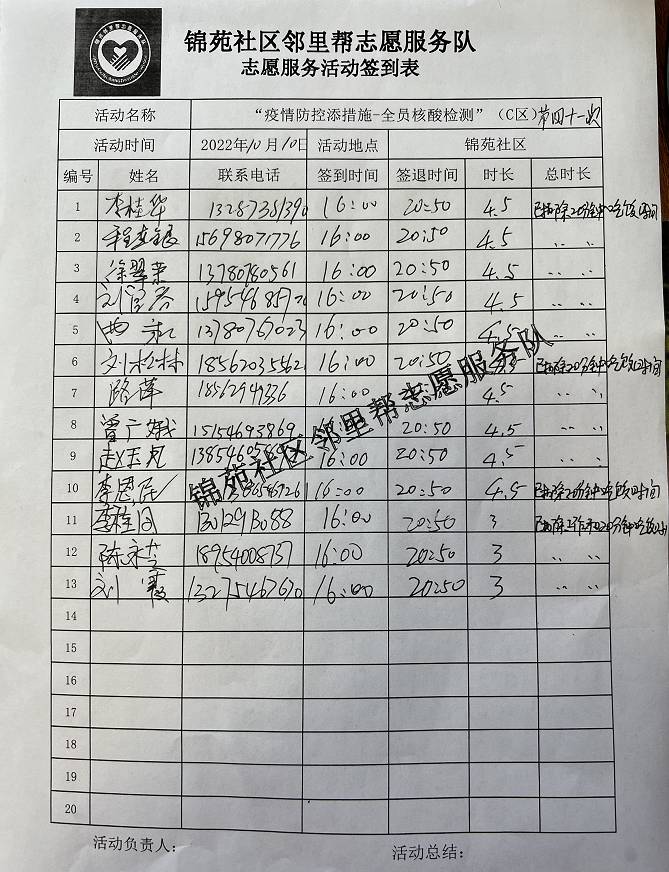 锦苑社区邻里帮志愿服务队
志愿服务活动签到表
活动名称 “疫情防控添措施-全员核酸检测”(C区)第四十一次
活动时间 2022年10月10日 活动地点 锦苑社区
编号 姓名 联系电话 签到时间 签退时间 时长 总时长
1 李桂华 16:00 20:50 4.5 已扣除20分钟吃饭时间
2 15698071776 16:00 20:50 4.5 〃 〃
3 徐翠荣 13780780561 16:00 20:50 4.5 〃 〃
4 16:00 20:50 4.5 〃 〃
5 13780767023 16:00 20:50 4.5 〃 〃
6 刘松林 18562035562 16:00 20:50 已扣除20分钟吃饭时间
7 路萍 16:00 20:50 4.5 〃 〃
8 曾广娥 15154693869 20:50 4.5 〃 〃
9 赵玉贞 16:00 20:50 4.5 〃 〃
10 16:00 20:50 4.5 已扣除20分钟吃饭时间
11 李桂同 16:00 20:50 3
12 陈永芝 18954008737 16:00 20:50 3 〃 〃
13 刘霞 13275467670 16:00 20:50 3 〃 〃
14
15
16
17
18
19
20
活动负责人: 活动总结:
锦苑社区邻里帮志愿服务队